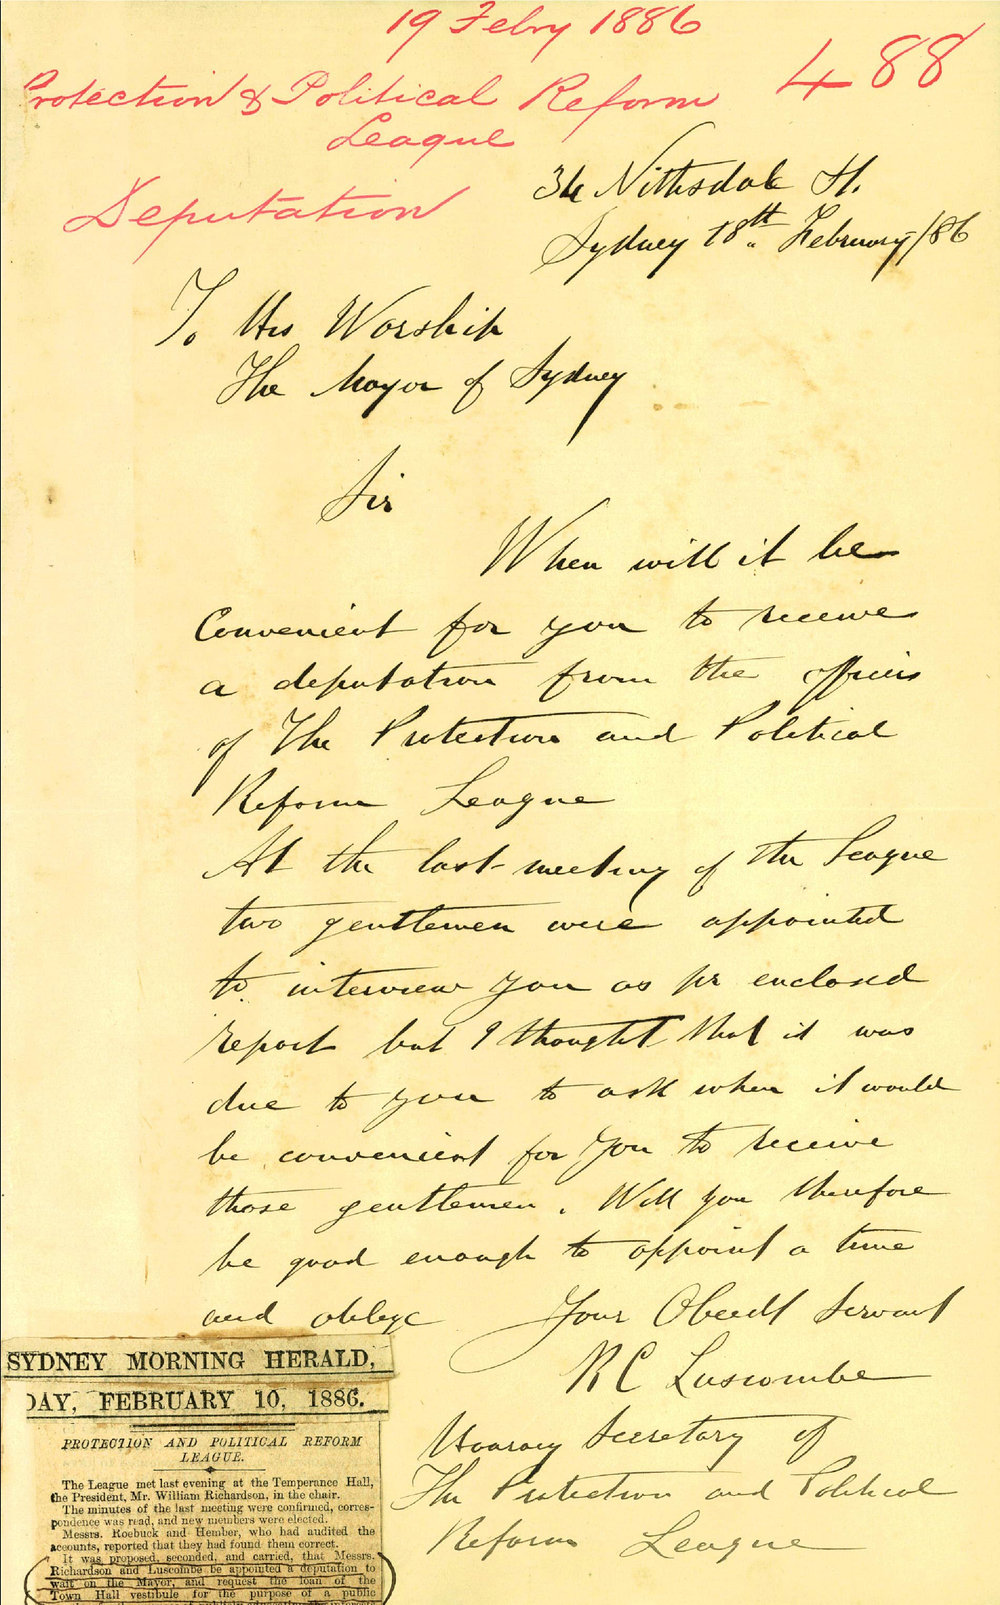 19 Febry 1886
488
Protection & Political Reform
League
Deputation
34 Nithsdale St.
Sydney 18th. February/86
To His Worship
The Mayor of Sydney
Sir
When will it be
Convenient for you to receive
a deputation from the officers
of The Protection and Political
Reform League
At the last meeting of the League
two gentlemen were appointed
to interview you as pr enclosed
report but I thought that it was
due to you to ask when it would
be convenient for you to receive
those gentlemen. Will you therefore
be good enough to appoint a time
and oblige Your Obedt Servant
R C Luscombe
Honorary Secretary of
The Protection and Political
Reform League
SYDNEY MORNING HERALD,
DAY, FEBRUARY 10, 1886.
PROTECTION AND POLITICAL REFORM
LEAGUE.
The League met last evening at the Temperance Hall,
the President, Mr. William Richardson, in the chair.
The minutes of the last meeting were confirmed, corres-
pondence was read, and new members were elected.
Messrs. Roebuck and Hember, who had audited the
accounts, reported that they had found them correct.
It was proposed, seconded, and carried, that Messrs.
Richardson and Luscombe be appointed a deputation to
wait on the Mayor, and request the loan of the
Town Hall vestibule for the purpose of a public